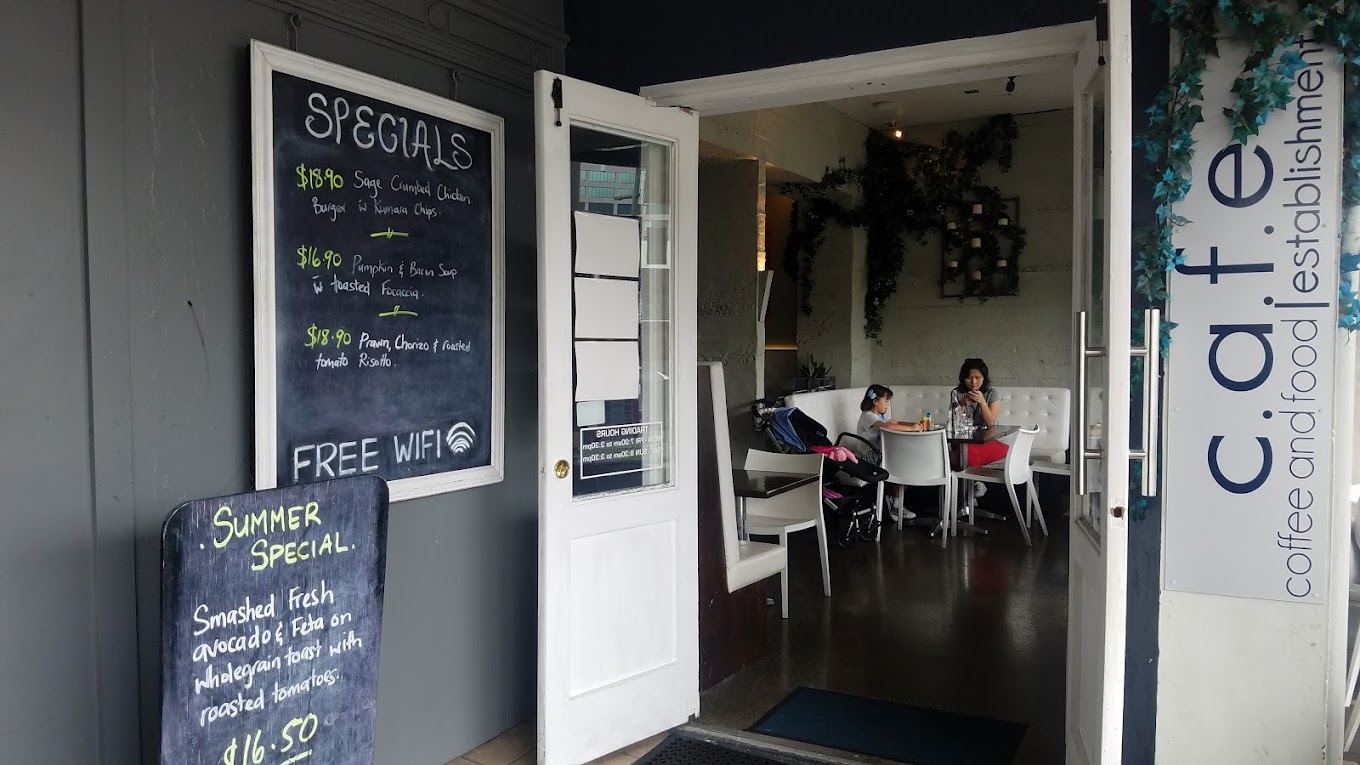 SPECIALS
$18.90 Sage Crumbed Chicken
Burger w Kumara Chips.
$16.90 Pumpkin & Bacon Soup
w toasted Focaccia.
$18.90 Prawn, Chorizo & roasted
tomato Risotto.
FREE WIFI
.SUMMER
SPECIAL.
Smashed Fresh
avocado & Feta on
wholegrain toast with
roasted tomatoes.
$16.50
TRADING HOURS
MON - FRI 7:00am to 3:30pm
SUN 8:30am to 3:30pm
c.a.f.e
coffee and food|establishment